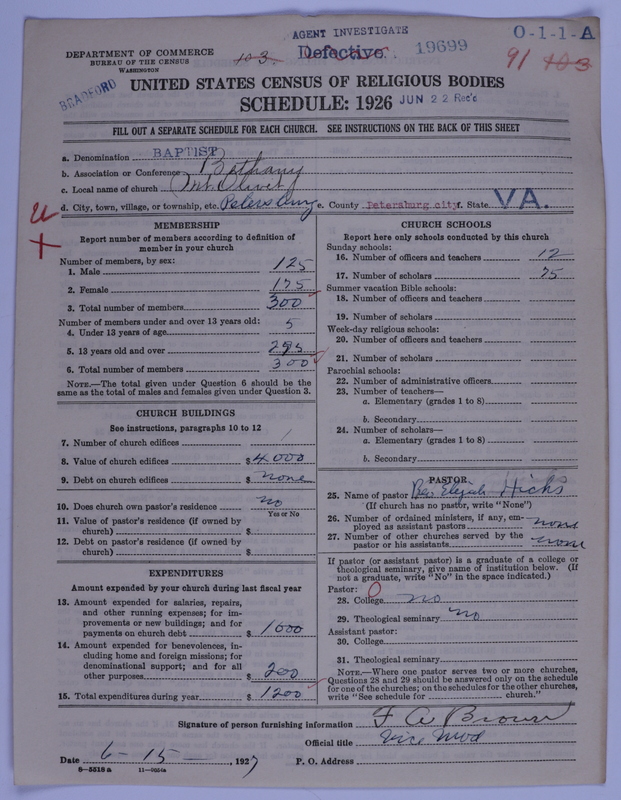 AGENT INVESTIGATE
O-1-1-A
DEPARTMENT OF COMMERCE
BUREAU OF THE CENSUS
WASHINGTON
103.
Defective
19699
91 103
BRADFORD
UNITED STATES CENSUS OF RELIGIOUS BODIES
SCHEDULE: 1926
JUN 22 Rec'd
FILL OUT A SEPARATE SCHEDULE FOR EACH CHURCH. SEE INSTRUCTIONS ON THE BACK OF THIS SHEET
a. Denomination BAPTIST
b. Association or Conference Bethany
c. Local name of church Mt. Olivet
d. City, town, village, or township, etc. Petersburg e. County Petersburg city f. State VA.
MEMBERSHIP
Report number of members according to definition of member in your church
Number of members, by sex:
1. Male 125
2. Female 175
3. Total number of members 300
Number of members under and over 13 years old:
4. Under 13 years of age 5
5. 13 years old and over 295
6. Total number of members 300
NOTE.—The total given under Question 6 should be the same as the total of males and females given under Question 3.
CHURCH BUILDINGS
See instructions, paragraphs 10 to 12
7. Number of church edifices 1
8. Value of church edifices $ 4000
9. Debt on church edifices $ none
10. Does church own pastor's residence no
Yes or No
11. Value of pastor's residence (if owned by church) $
12. Debt on pastor's residence (if owned by church) $
EXPENDITURES
Amount expended by your church during last fiscal year
13. Amount expended for salaries, repairs, and other running expenses; for improvements or new buildings; and for payments on church debt $ 1000
14. Amount expended for benevolences, including home and foreign missions; for denominational support; and for all other purposes $ 200
15. Total expenditures during year $ 1200
CHURCH SCHOOLS
Report here only schools conducted by this church
Sunday schools:
16. Number of officers and teachers 12
17. Number of scholars 75
Summer vacation Bible schools:
18. Number of officers and teachers
19. Number of scholars
Week-day religious schools:
20. Number of officers and teachers
21. Number of scholars
Parochial schools:
22. Number of administrative officers
23. Number of teachers—
a. Elementary (grades 1 to 8)
b. Secondary
24. Number of scholars—
a. Elementary (grades 1 to 8)
b. Secondary
PASTOR
25. Name of pastor Rev Elijah Hicks
(If church has no pastor, write "None")
26. Number of ordained ministers, if any, employed as assistant pastors none
27. Number of other churches served by the pastor or his assistants none
If pastor (or assistant pastor) is a graduate of a college or theological seminary, give name of institution below. (If not a graduate, write "No" in the space indicated.)
Pastor:
28. College no
29. Theological seminary no
Assistant pastor:
30. College
31. Theological seminary
NOTE.—Where one pastor serves two or more churches, Questions 28 and 29 should be answered only on the schedule for one of the churches; on the schedules for the other churches, write "See schedule for church."
Signature of person furnishing information F. A. Brown
Official title Vice Mod
Date 6-15-, 1927 P. O. Address
8-5518a 11-9054a